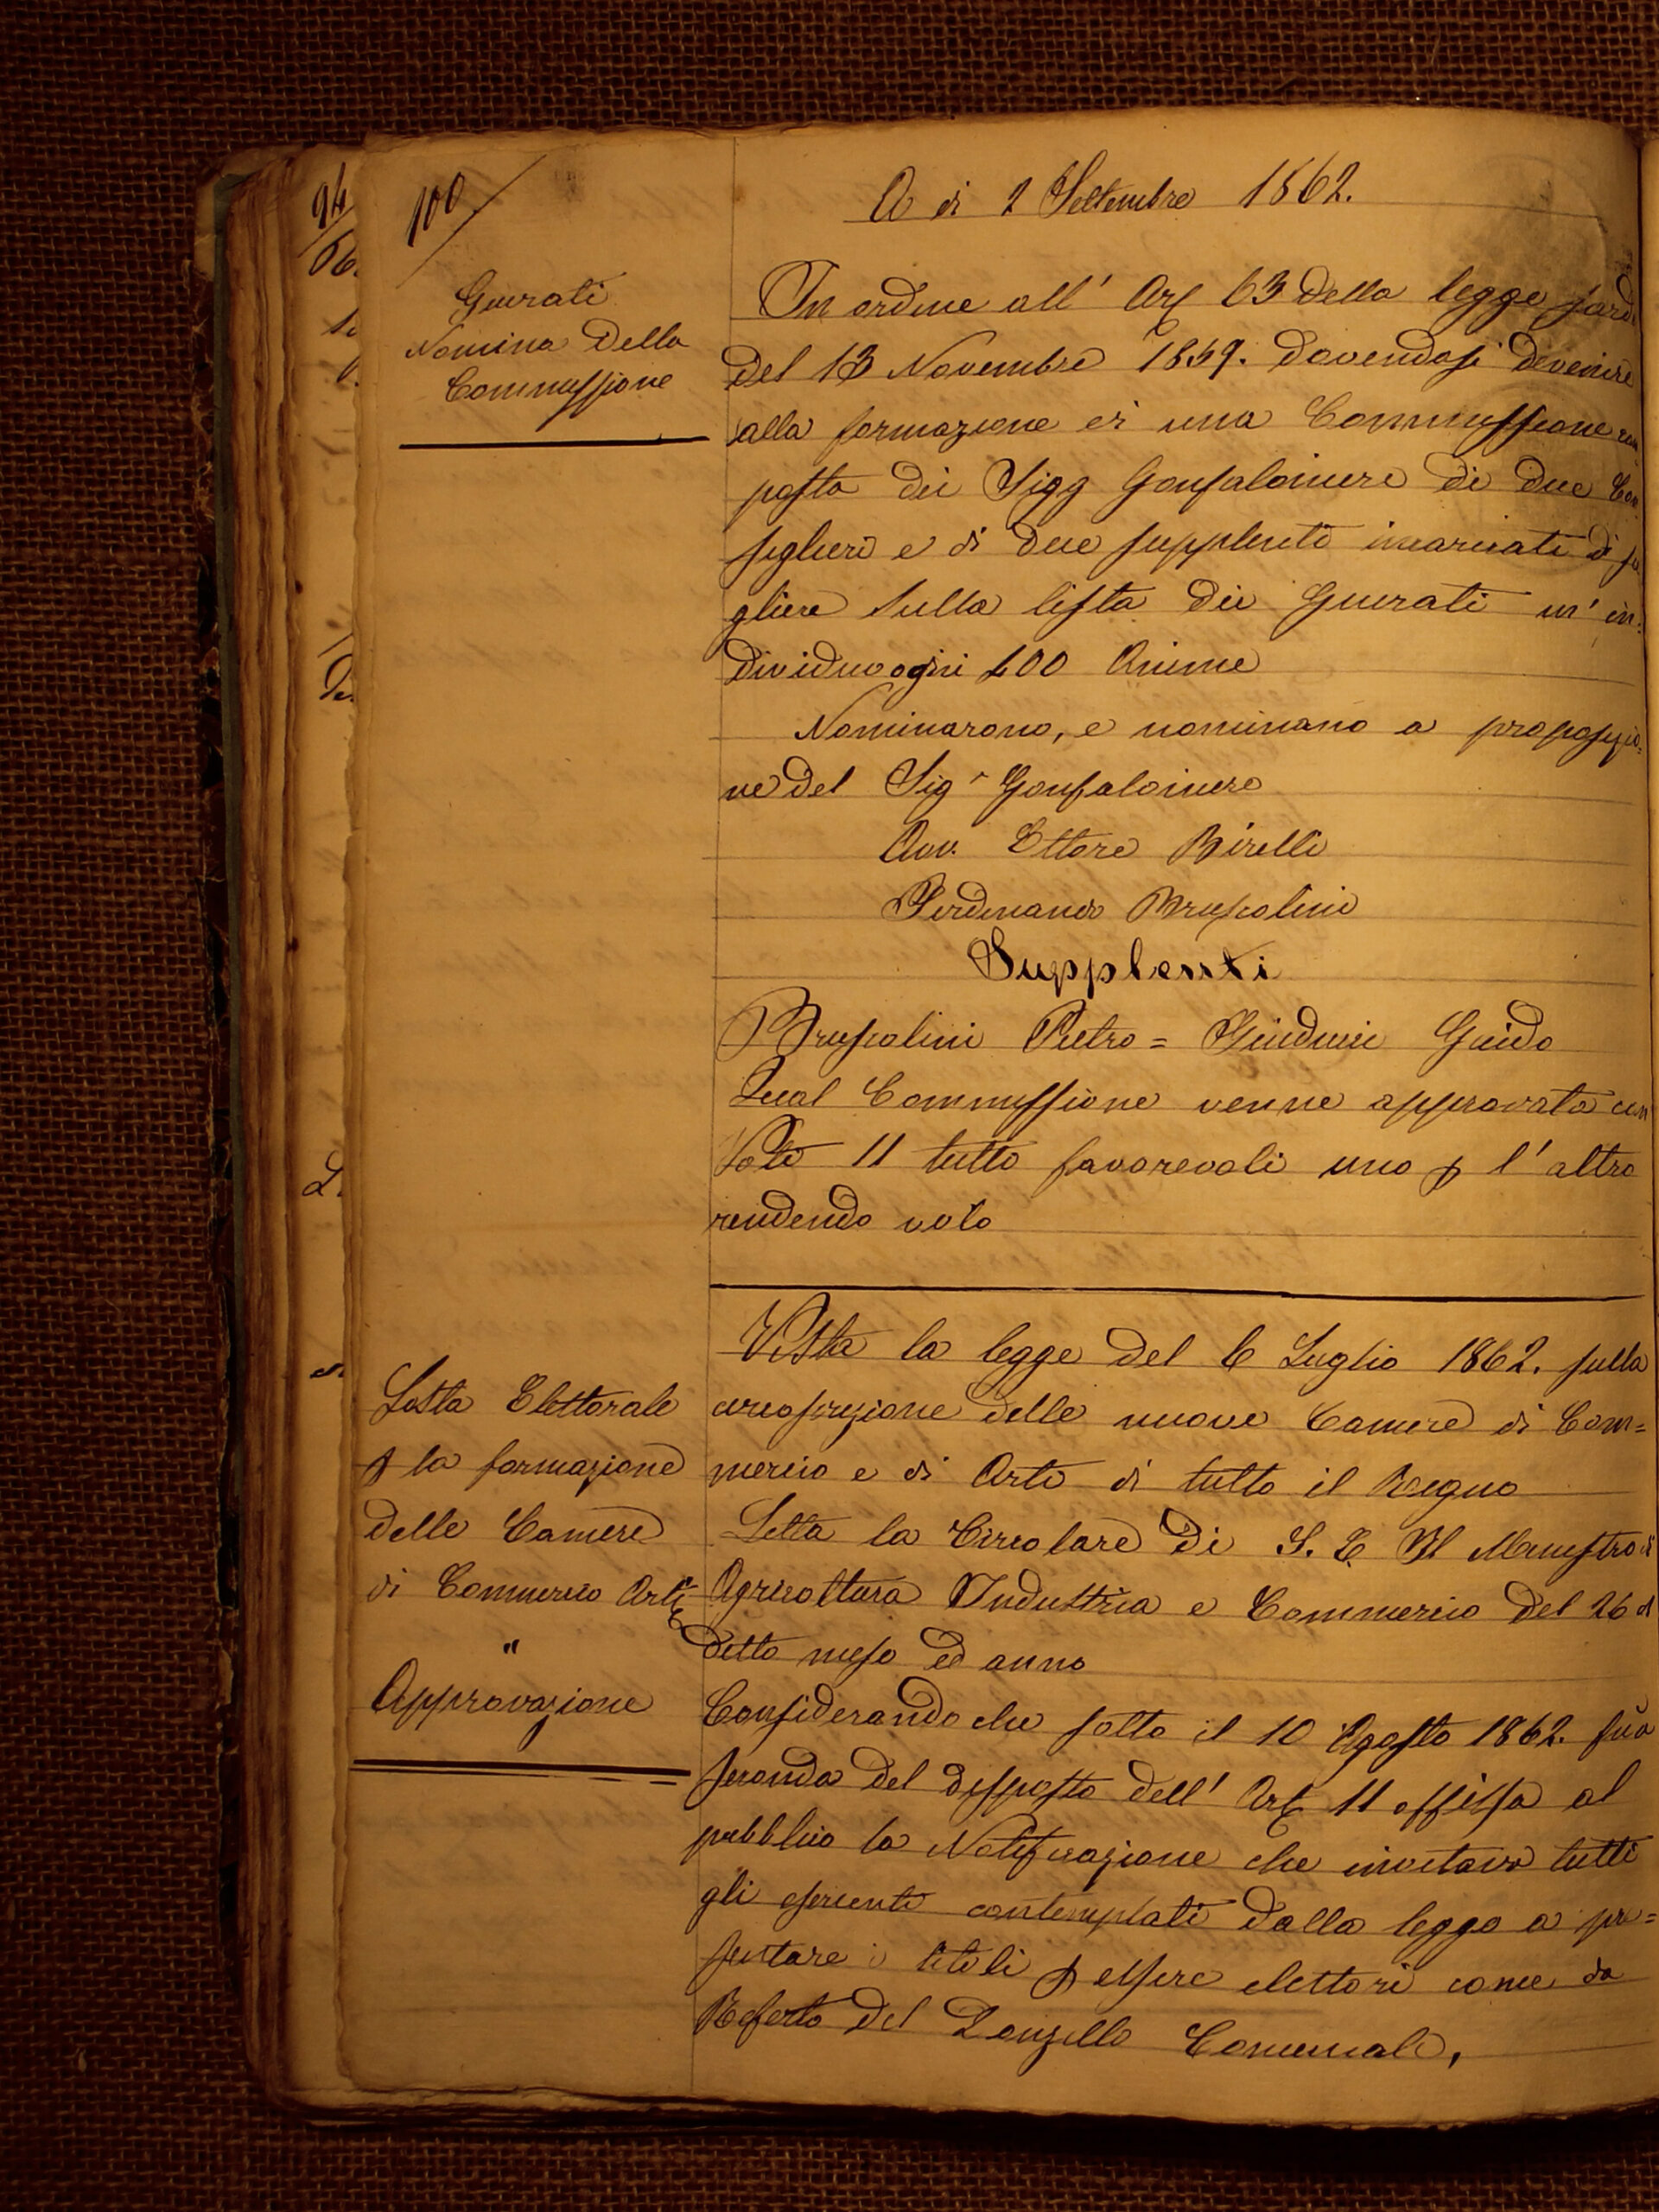 100
A di 2 Settembre 1862.
Giurati
Nomina Della
Commissione
In ordine all' Art 63 della legge sard
del 13 Novembre 1859. dovendosi devenire
alla formazione di una Commissione com
posta dei Sigg Gonfaloniere di due Con
siglieri e di due supplenti incaricati di sce
gliere sulla lista dei Giurati un' in:
dividuo ogni 400 Anime
Nominarono, e nominano a proposizio=
ne del Sigr Gonfaloniere
Avv. Ettore Birelli
Ferdinando Bruscolini
Supplenti
Bruscolini Pietro = Guido
Qual Commissione venne approvata con
Voti 11 tutti favorevoli uno p l' altro
rendendo voto
Lista Elettorale
p la formazione
delle Camere
di Commercio Arti
E
"
Approvazione
Vista la legge del 6 Luglio 1862. sulla
circoscrizione delle nuove Camere di Com=
mercio e di Arti di tutto il Regno
Letta la Circolare di S. E Il Ministro di
Agricoltura Industria e Commercio del 26 d
detto mese ed anno
Considerando che sotto il 10 Agosto 1862. fu a
seconda del disposto dell' Art 11 affissa al
pubblico la Notificazione che invitava tutti
gli esercenti contemplati dalla legge a pre=
sentare i titoli p essere elettori come da
Referto del Donzello Comunale,
94